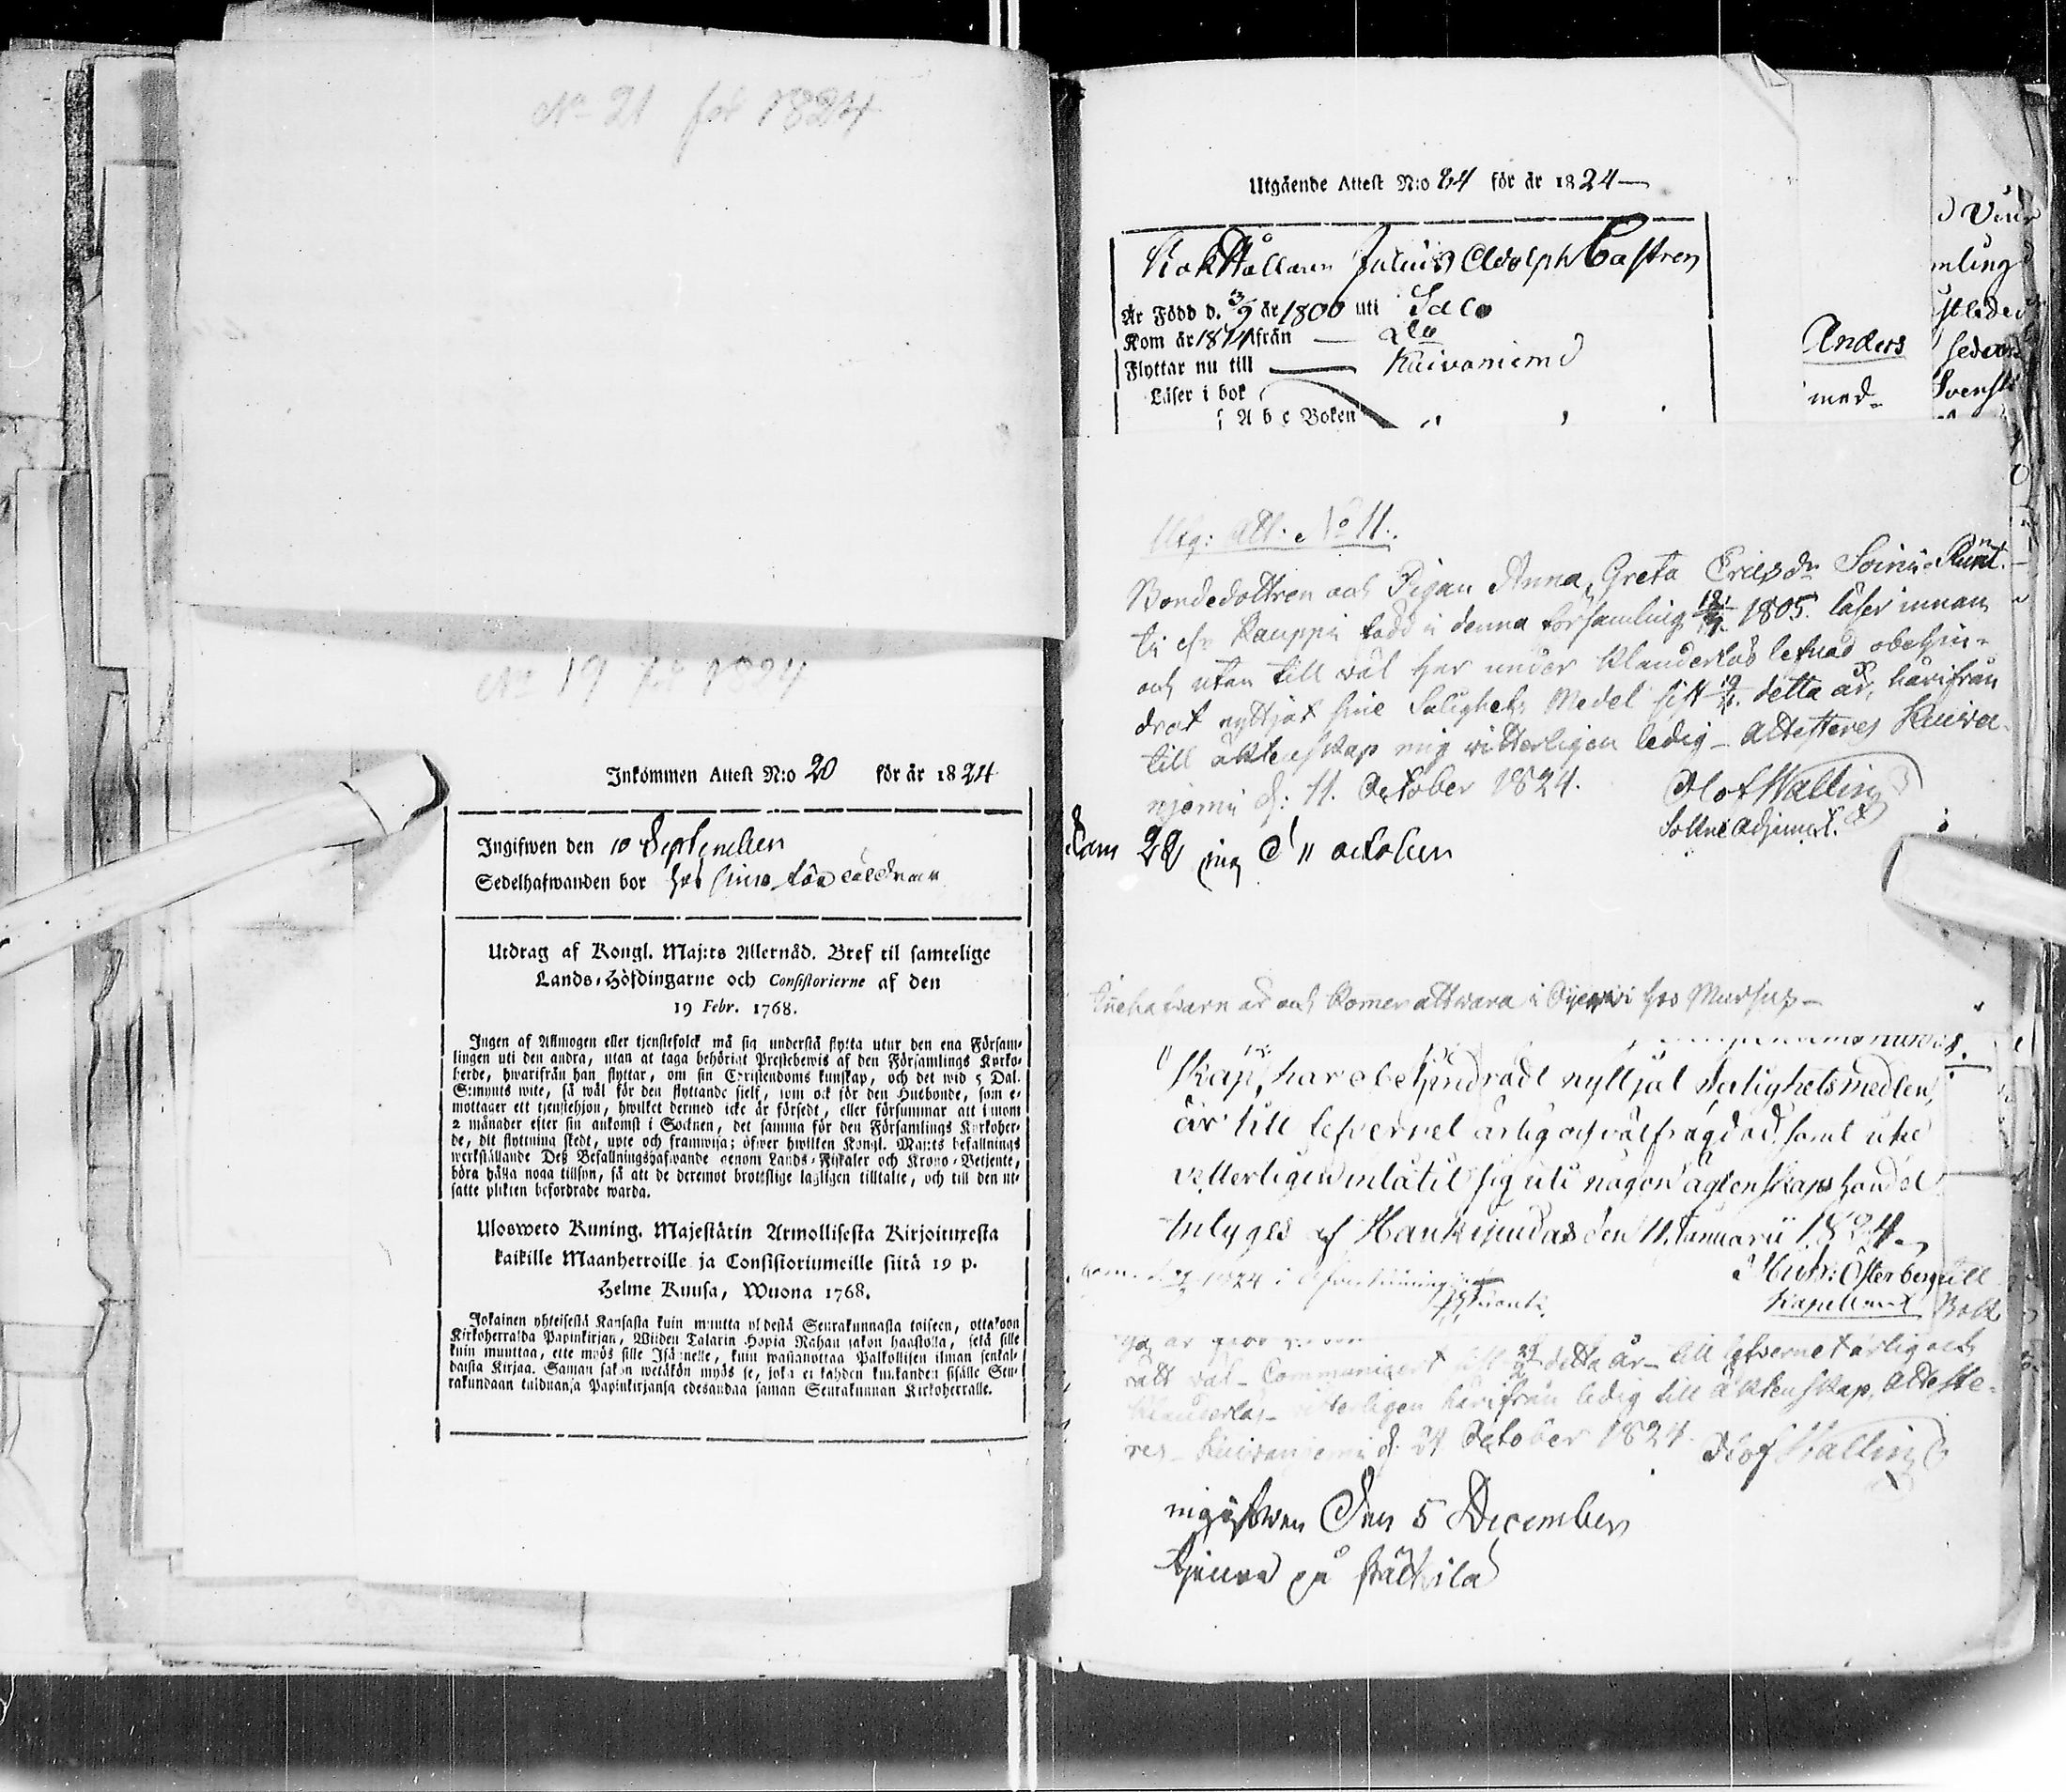 No 21 för 1824
No 19 för 1824
Inkommen Attest N:o 20 för år 1824
Ingifwen den 10 September
Sedelhafwanden bor hos sina föräldrar
Utdrag af Kongl. Maj:ts Allernåd. Bref til samtelige
Lands-Höfdingarne och Consistorierne af den
19 Febr. 1768.
Ingen af Allmogen eller tjenstefolck må sig understå flytta utur den ena Försam-
lingen uti den andra, utan at taga behörigt Prestebewis af den Församlings Kyrko-
herde, hwarifrån han flyttar, om sin Christendoms kunskap, och det wid 5 Dal.
S:mynts wite, så wäl för den flyttande sielf, som ock för den Husbonde, som e-
mottager ett tjenstehjon, hwilket dermed icke är försedt, eller försummar att inom
2 månader efter sin ankomst i Socknen, det samma för den Församlings Kyrkoher-
de, dit flyttning skedt, upte och framwisa; öfwer hwilken Kongl. Maj:ts befallnings
werkställande Deß Befallningshafwande genom Lands-Fiskaler och Krono-Betjente,
böra hålla noga tillsyn, så att de deremot brottslige lagligen tilltalte, och till den ut-
satte plikten befordrade warda.
Ulosweto Kuning. Majestätin Armollisesta Kirjoituxesta
kaikille Maanherroille ja Consistoriumeille siitä 19 p.
Helme Kuusa, Wuona 1768.
Jokainen yhteisestä Kansasta kuin muutta yhdestä Seurakunnasta toiseen, ottakoon
Kirkoherralda Papinkirjan, Wiiden Talarin Hopia Rahan sakon haastolla, sekä sille
kuin muuttaa, ette myös sille Isännelle, kuin wastanottaa Palkollisen ilman senkal-
daista Kirjaa. Saman sakon wetäkön myös se, joka ei kahden kuukauden sisälle Seu-
rakundaan tulduansa Papinkirjansa edesandaa saman Seurakunnan Kirkoherralle.
Utgående Attest N:o 84 för år 1824
Julius Adolph Castren
Är Född d. 13/9 år 1800 uti Salo
Kom år 1814 från
Flyttar nu till Kuivaniemi
Läser i bok
A b c Boken
Anders
med
Utg: Att: No 11.
Bondedottren och Pigan Anna Greta Ericsdr Soinu
Kauppi född i denna församling 1805. läser innan
och utan till wäl har under klanderlös lefnad obehin-
drat nyttjat sine Salighets Medel sist detta år, härifrån
till äktenskap mig witterligen ledig – Attesteres Kuiva-
njemi d: 11. October 1824. Olof Wallin
Sokne Adjunct.
22 d 11 october
Innehafvarn är och kommer att wara i hos
skap, har obehindradt nyttjat Salighetsmedlen,
är till lefvernet ärlig och välfrägdad, samt icke
vetterligen inlåtit sig uti någon äktenskaps handel
betyges af Haukipudas den 11. Januarii 1824.
Österberg
Kapellan
rätt wäl – Communicert sist detta år – till lefvernet ärlig och
klanderlös – witterligen härifrån ledig till äktenskap, Atteste-
res – Kuivanjemi d: 24 October 1824. Olof Wallin
ingifwen Den 5 December
tjenna på